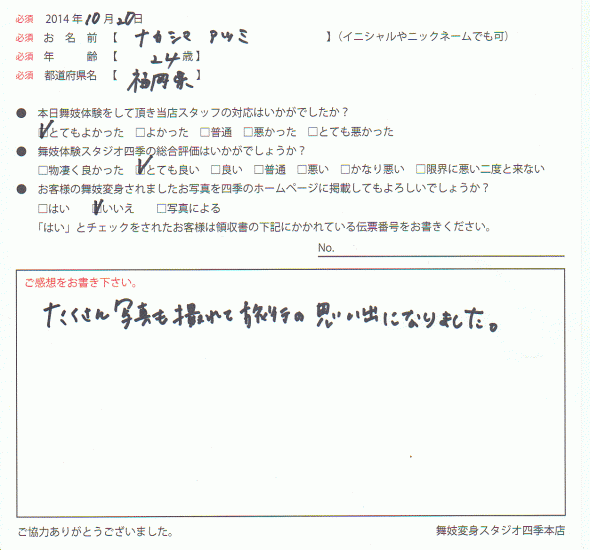 必須 2014年10月20日
必須 お名前【 ナカシマ アツミ 】(イニシャルやニックネームでも可)
必須 年齢【 24歳】
必須 都道府県名【 福岡県
● 本日舞妓体験をして頂き当店スタッフの対応はいかがでしたか？
☑とてもよかった □よかった □普通 □悪かった □とても悪かった
● 舞妓体験スタジオ四季の総合評価はいかがでしょうか？
□物凄く良かった ☑とても良い □良い □普通 □悪い □かなり悪い □限界に悪い二度と来ない
● お客様の舞妓変身されましたお写真を四季のホームページに掲載してもよろしいでしょうか？
□はい ☑いいえ □写真による
「はい」とチェックをされたお客様は領収書の下記にかかれている伝票番号をお書きください。
No.
ご感想をお書き下さい。
たくさん写真も撮れて旅行の思い出になりました。
ご協力ありがとうございました。 舞妓変身スタジオ四季本店